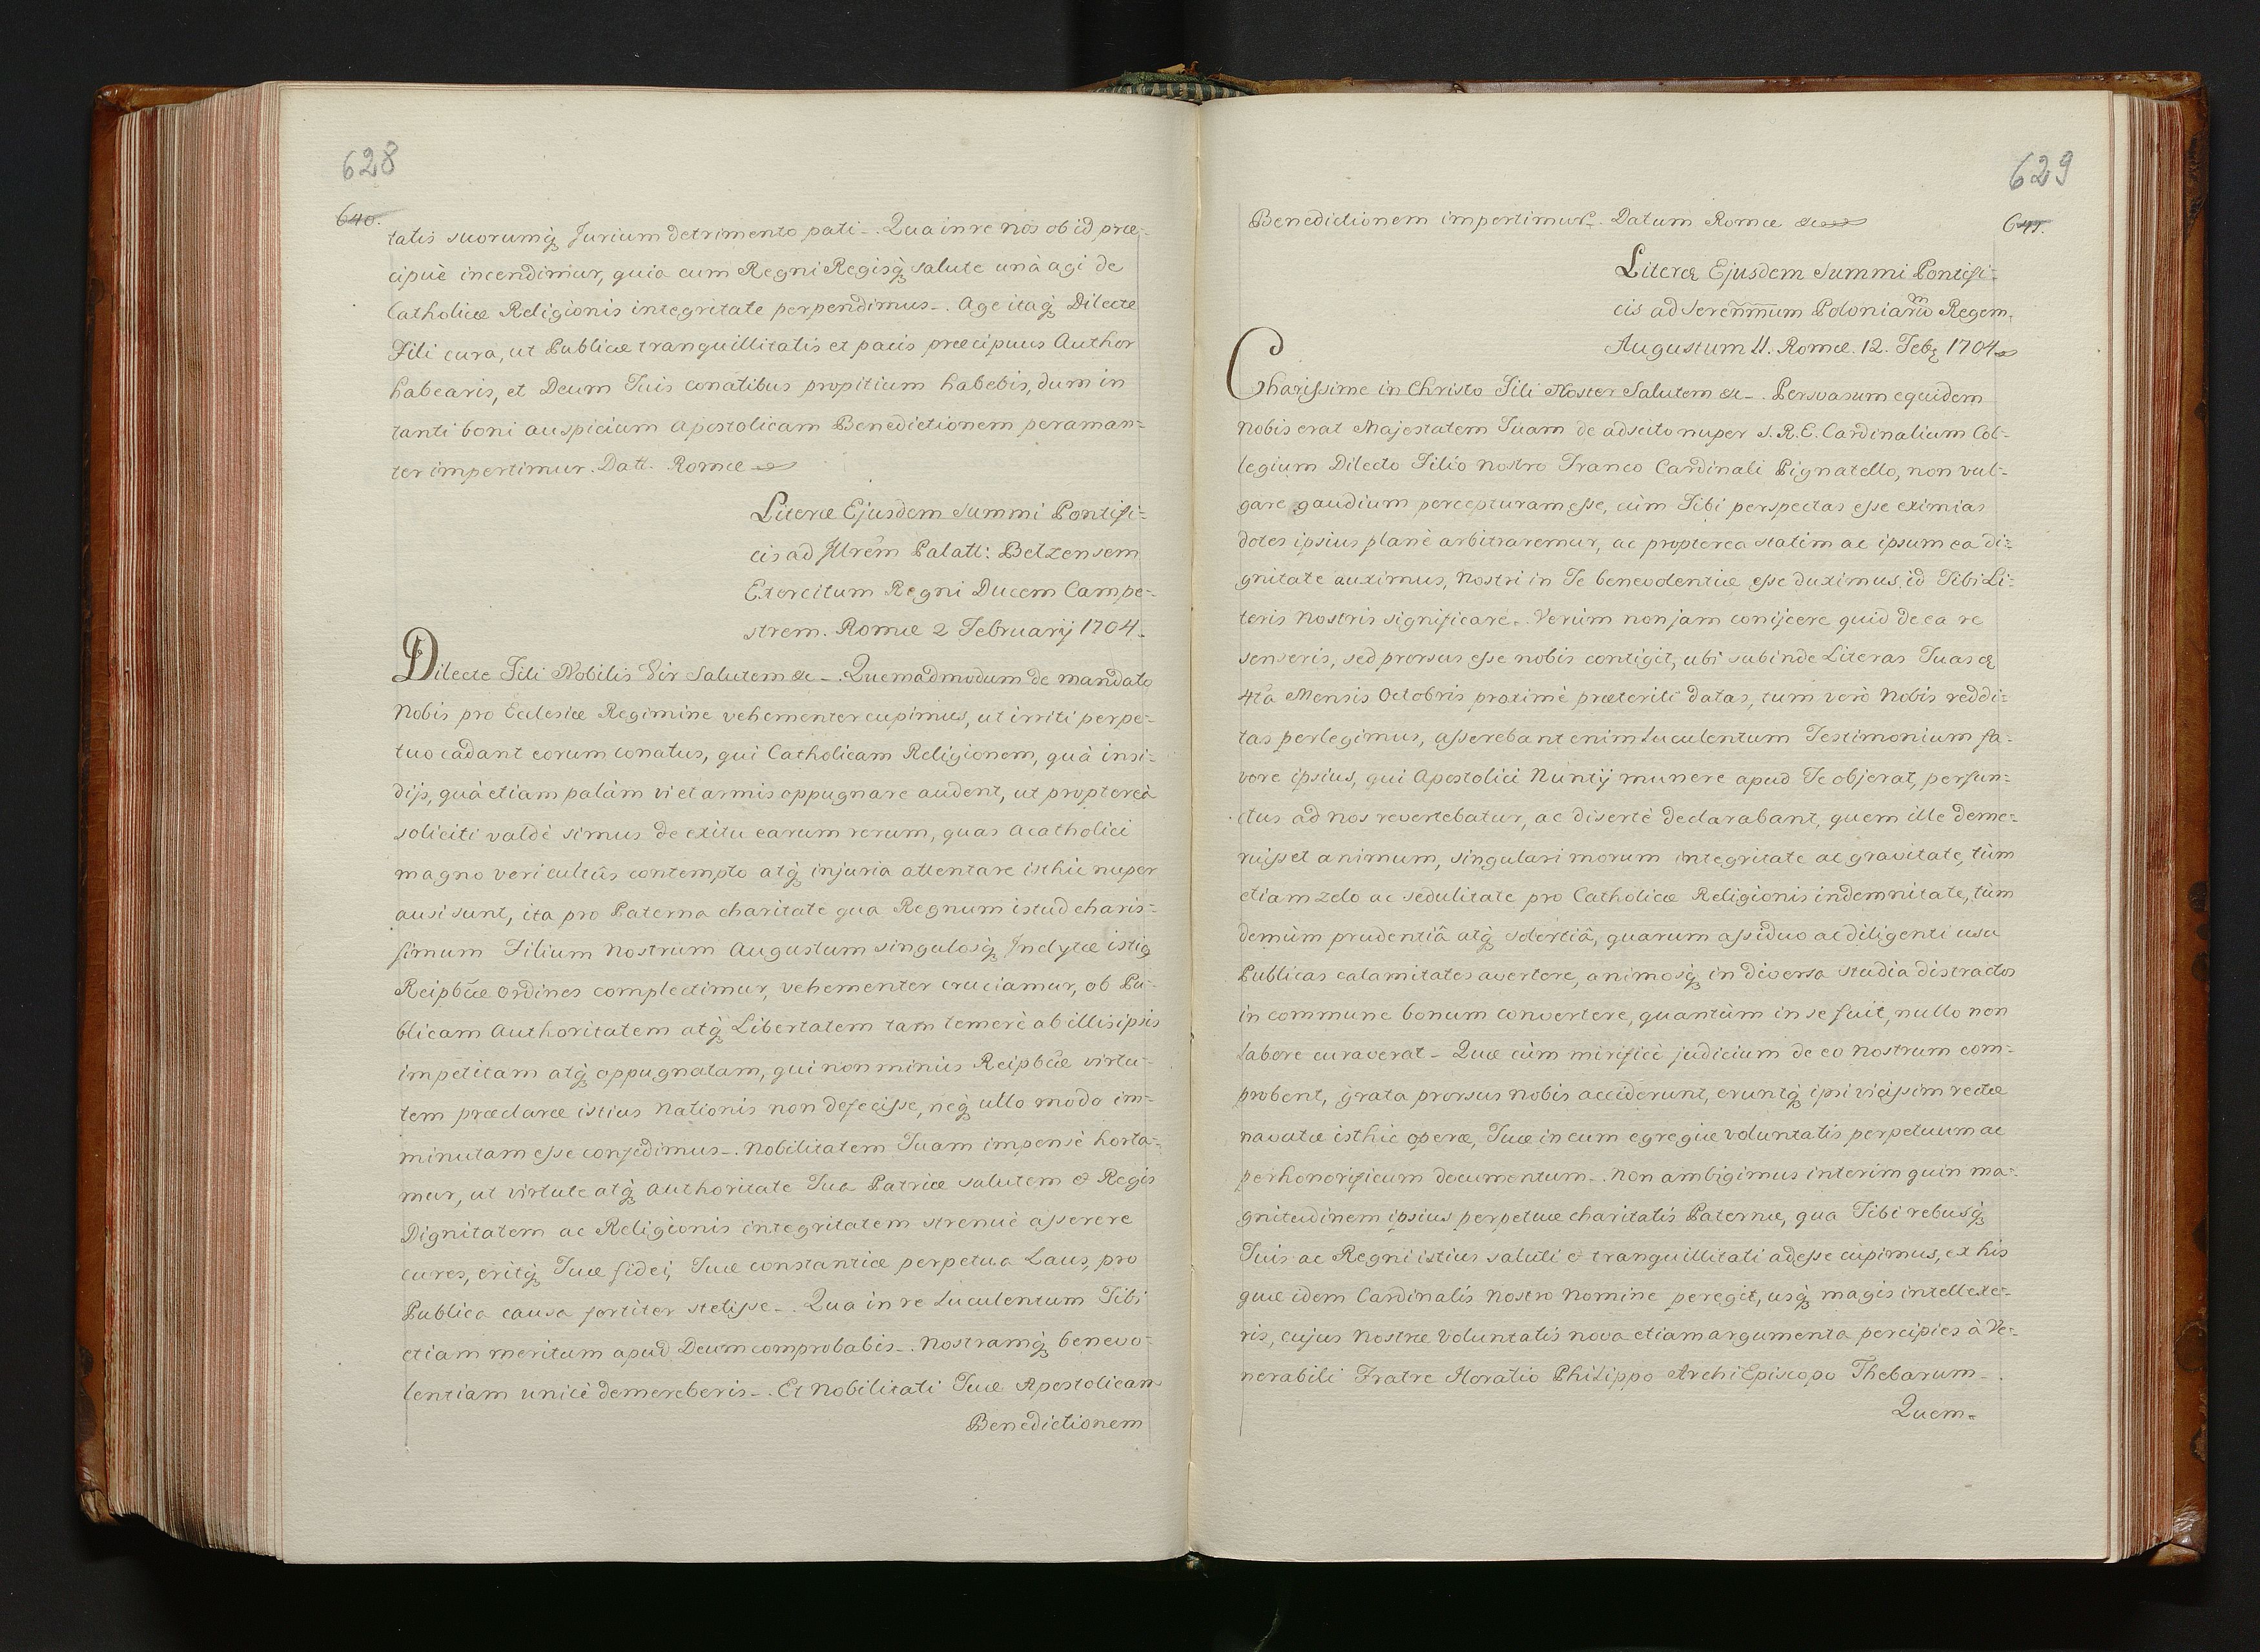 628
640.
tatis suorumq; Jurium detrimento pati_. Qua in re nos ob id præ-
cipuè incendimur, quia cum Regni Regisq; salute unà agi de
Catholicæ Religionis integritate perpendimus_. Age itaq; Dilecte
Fili cura, ut Publicæ tranquillitatis et pacis præcipuus Author
habearis, et Deum Tuis conatibus propitium habebis, dum in
tanti boni auspicium Apostolicam Benedictionem peraman-
ter impertimur. Datt. Romæ
Literæ Ejusdem Summi Pontifi-
cis ad Illrem Palatt: Belzensem
Exercitum Regni Ducem Campe-
strem. Romæ 2 February 1704.
Dilecte Fili Nobilis Vir Salutem &c_. Quemadmodum de mandato
Nobis pro Ecclesiæ Regimine vehementer cupimus, ut irriti perpe-
tuo cadant eorum conatus, qui Catholicam Religionem, quà insi-
dijs, quà etiam palàm vi et armis oppugnare audent, ut proptereà
soliciti valdè simus de exitu earum rerum, quas Acatholici
magno veri cultûs contempto atq; injuria attentare isthic nuper
ausi sunt, ita pro Paterna charitate qua Regnum istud charis-
simum Filium Nostrum Augustum singulosq; Inclytæ istiq
Reipbcæ Ordines complectimur, vehementer cruciamur, ob Pu-
blicam Authoritatem atq; Libertatem tam temerè ab illis ipsis
impetitam atq; oppugnatam, qui non minùs Reipbcæ virtu-
tem præclaræ istius Nationis non defecisse, neq; ullo modo im-
minutam esse confidimus_. Nobilitatem Tuam impensè horta-
mur, ut virtute atq; Authoritate Tua Patriæ salutem & Regis
Dignitatem ac Religionis integritatem strenuè asserere
cures, eritq; Tuæ fidei, Tuæ constantiæ perpetua Laus, pro
Publica causa fortiter stetisse_. Qua in re Luculentum Tibi
etiam meritum apud Deum comprobabis_. Nostramq; benevo-
lentiam unicè demereberis_. Et Nobilitati Tuæ Apostolicam
Benedictionem
629
641.
Benedictionem impertimur_. Datum Romæ &c
Literæ Ejusdem Summi Pontifi-
cis ad Serenmum Poloniarum Regem
Augustum II. Romæ. 12. Feb; 1704
Charissime in Christo Fili Noster Salutem &c_. Persvasum equidem
Nobis erat Majestatem Tuam de adscito nuper S.R.E. Cardinalium Col-
legium Dilecto Filio Nostro Franco Cardinali Pignatello, non vul-
gare gaudium percepturam esse, cùm Tibi perspectas esse eximias
dotes ipsius planè arbitraremur, ac propterea statim ac ipsum ea di-
gnitate auximus, Nostri in Te benevolentiæ esse duximus id Tibi Li-
teris Nostris significare_. Verùm non jam conijcere quid de ea re
senseris, sed prorsus esse nobis contigit, ubi subinde Literas Tuas
4tâ Mensis Octobris proximè præteriti datas, tum verò Nobis reddi-
tas perlegimus, asserebant enim Luculentum Testimonium fa-
vore ipsius, qui Apostolici Nuntij munere apud Te objerat, perfun-
ctus ad nos revertebatur, ac disertè declarabant, quem ille deme-
ruisset animum, singulari morum integritate ac gravitate, tùm
etiam zelo ac sedulitate pro Catholicæ Religionis indemnitate, tùm
demùm prudentiâ atq; solertiâ, quarum assiduo ac diligenti usu
Publicas calamitates avertere, animosq; in diversa studia distractos
in commune bonum convertere, quantùm in se fuit, nullo non
labore curaverat_ Quæ cùm mirificè judicium de eo Nostrum com-
probent, grata prorsus Nobis acciderunt, eruntq; ipsi vicissim rectæ
navatæ isthic operæ, Tuæ in eum egregiæ voluntatis perpetuum ac
perhonorificum documentum_. Non ambigimus interim quin ma-
gnitudinem ipsius perpetuæ charitatis Paternæ, qua Tibi rebusq;
Tuis ac Regni istius saluti & tranquillitati adesse cupimus, ex his
quæ idem Cardinalis Nostro Nomine peregit, usq; magis intellexe-
ris, cujus Nostræ Voluntatis nova etiam argumenta percipies à Ve-
nerabili Fratre Horatio Philippo ArchiEpiscopo Thebarum_
Quem-